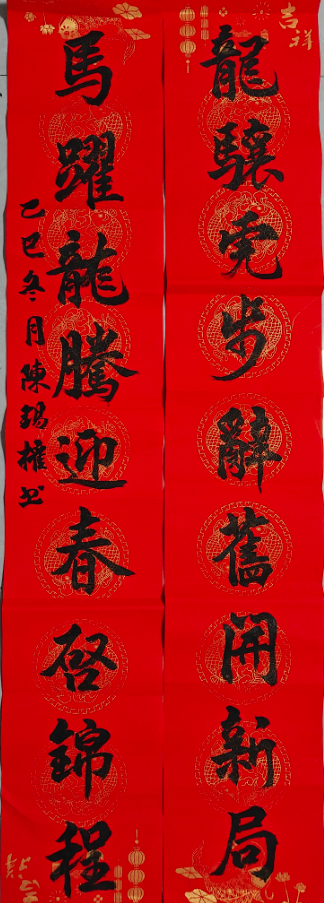 吉祥
龍驤虎步辭舊開新局
馬躍龍騰迎春啓錦程
乙巳冬月陳錫權书